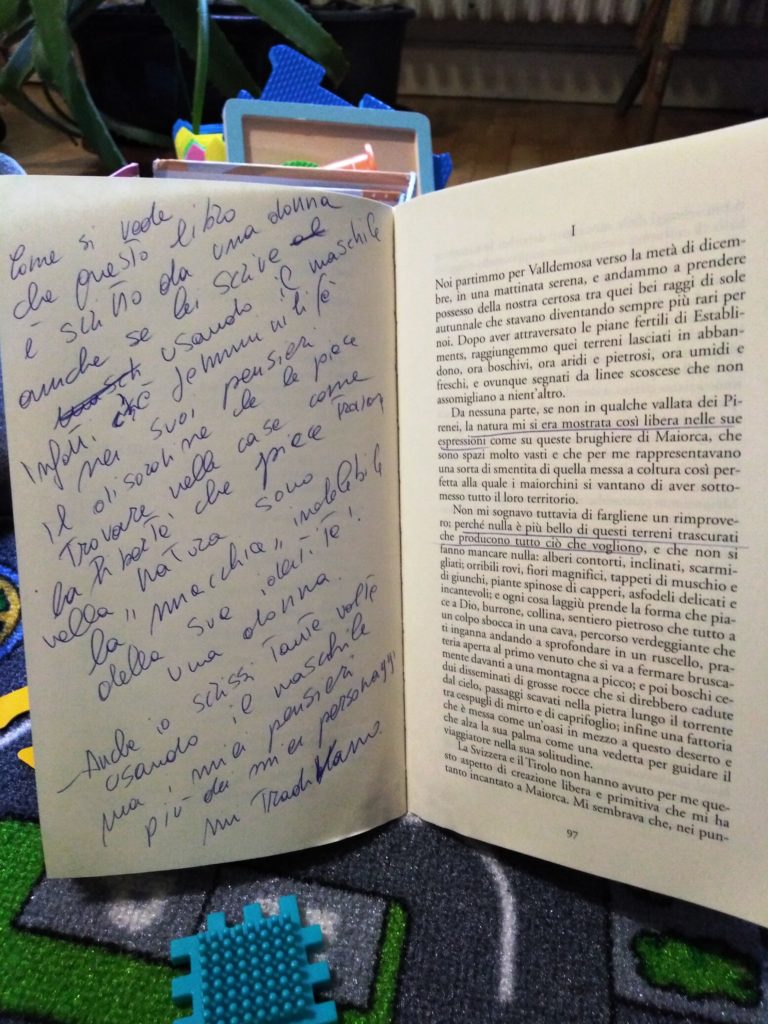 Come si vede
che questo libro
è scritto da una donna
anche se lei scrive al
usando il maschile
Infatti, c'è femminilità
nei suoi pensieri.
Il disordine che le piace
trovare nella case come
la libertà che piace
nella natura sono
la "macchia" indelebile
della sua identità:
una donna.
– Anche io scrissi tante volte
usando il maschile
ma i miei pensieri
più dei miei personaggi
mi tradivano.
I
Noi partimmo per Valldemosa verso la metà di dicem-
bre, in una mattinata serena, e andammo a prendere
possesso della nostra certosa tra quei bei raggi di sole
autunnale che stavano diventando sempre più rari per
noi. Dopo aver attraversato le piane fertili di Establi-
ments, raggiungemmo quei terreni lasciati in abban-
dono, ora boschivi, ora aridi e pietrosi, ora umidi e
freschi, e ovunque segnati da linee scoscese che non
assomigliano a nient'altro.
Da nessuna parte, se non in qualche vallata dei Pi-
renei, la natura mi si era mostrata così libera nelle sue
espressioni come su queste brughiere di Maiorca, che
sono spazi molto vasti e che per me rappresentavano
una sorta di smentita di quella messa a coltura così per-
fetta alla quale i maiorchini si vantano di aver sotto-
messo tutto il loro territorio.
Non mi sognavo tuttavia di fargliene un rimprove-
ro; perché nulla è più bello di questi terreni trascurati
che producono tutto ciò che vogliono, e che non si
fanno mancare nulla: alberi contorti, inclinati, scarmi-
gliati; orribili rovi, fiori magnifici, tappeti di muschio e
di giunchi, piante spinose di capperi, asfodeli delicati e
incantevoli; e ogni cosa laggiù prende la forma che pia-
ce a Dio, burrone, collina, sentiero pietroso che tutto a
un colpo sbocca in una cava, percorso verdeggiante che
ti inganna andando a sprofondare in un ruscello, pra-
teria aperta al primo venuto che si va a fermare brusca-
mente davanti a una montagna a picco; e poi boschi ce-
dui disseminati di grosse rocce che si direbbero cadute
dal cielo, passaggi scavati nella pietra lungo il torrente
tra cespugli di mirto e di caprifoglio; infine una fattoria
che è messa come un'oasi in mezzo a questo deserto e
che alza la sua palma come una vedetta per guidare il
viaggiatore nella sua solitudine.
La Svizzera e il Tirolo non hanno avuto per me que-
sto aspetto di creazione libera e primitiva che mi ha
tanto incantato a Maiorca. Mi sembrava che, nei pun-
97